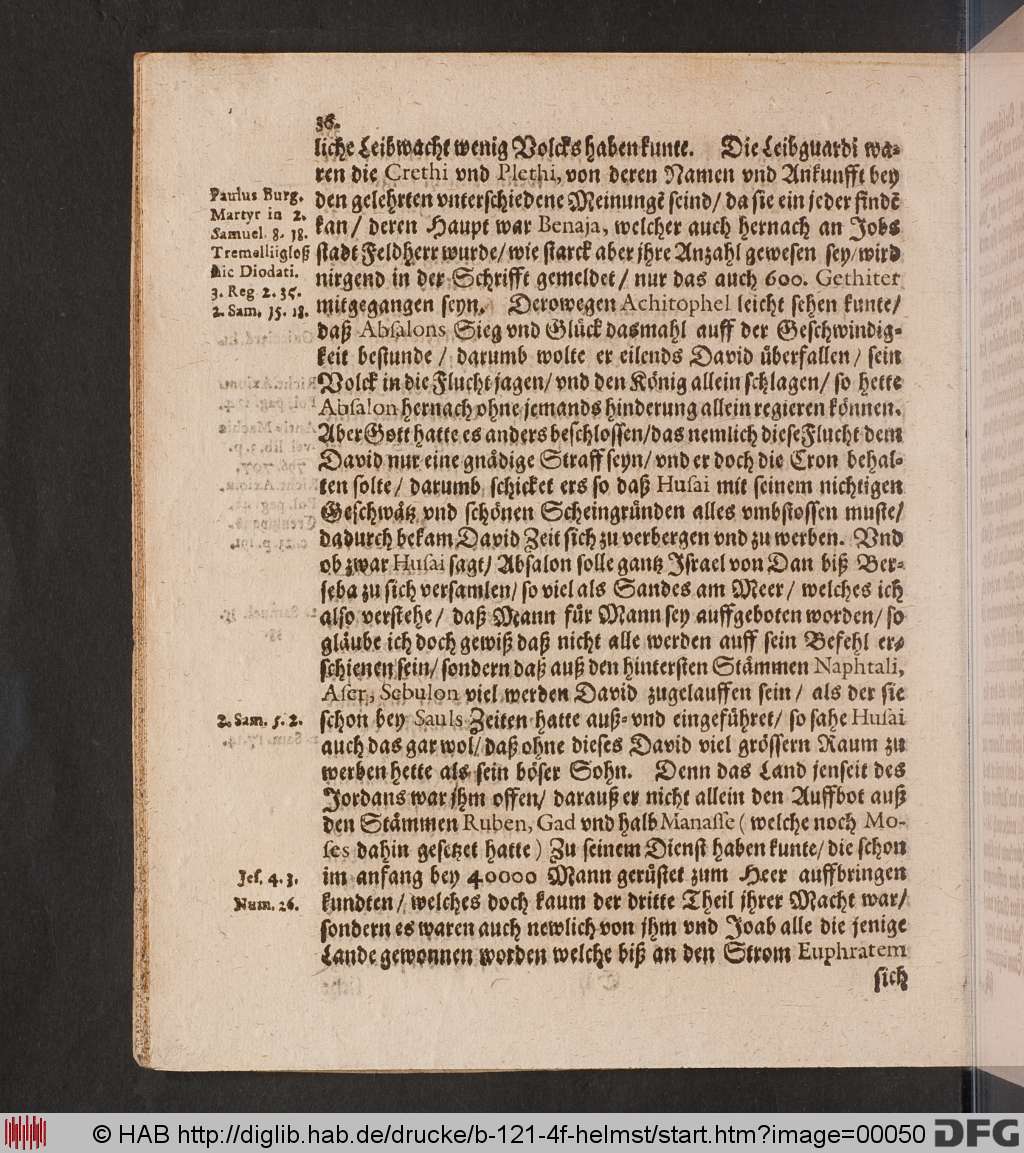 36.
liche Leibwacht wenig Volcks haben kunte. Die Leibguardi wa-
ren die Crethi vnd Plethi, von deren Namen vnd Ankunfft bey
den gelehrten vnterschiedene Meinungē seind/ da sie ein jeder findē
kan/ deren Haupt war Benaja, welcher auch hernach an Jobs
stadt Feldherr wurde/ wie starck aber jhre Anzahl gewesen sey/ wird
nirgend in der Schrifft gemeldet/ nur das auch 600. Gethiter
mitgegangen seyn. Derowegen Achitophel leicht sehen kunte/
daß Absalons Sieg vnd Glück dasmahl auff der Geschwindig-
keit bestunde/ darumb wolte er eilends David überfallen/ sein
Volck in die Flucht jagen/ vnd den König allein schlagen/ so hette
Absalon hernach ohne jemands hinderung allein regieren können.
Aber Gott hatte es anders beschlossen/ das nemlich diese Flucht dem
David nur eine gnädige Straff seyn/ vnd er doch die Cron behal-
ten solte/ darumb schicket ers so daß Husai mit seinem nichtigen
Geschwätz vnd schönen Scheingründen alles vmbstossen muste/
dadurch bekam David Zeit sich zu verbergen vnd zu werben. Vnd
ob zwar Husai sagt/ Absalon solle gantz Israel von Dan biß Ber-
seba zu sich versamlen/ so viel als Sandes am Meer/ welches ich
also verstehe/ daß Mann für Mann sey auffgeboten worden/ so
gläube ich doch gewiß daß nicht alle werden auff sein Befehl er-
schienen sein/ sondern daß auß den hintersten Stämmen Naphtali,
Aser, Sebulon viel werden David zugelauffen sein/ als der sie
schon bey Sauls Zeiten hatte auß- vnd eingeführet/ so sahe Husai
auch das gar wol/ daß ohne dieses David viel grössern Raum zu
werben hette als sein böser Sohn. Denn das Land jenseit des
Jordans war jhm offen/ darauß er nicht allein den Auffbot auß
den Stämmen Ruben, Gad vnd halb Manasse (welche noch Mo-
ses dahin gesetzet hatte) Zu seinem Dienst haben kunte/ die schon
im anfang bey 40000 Mann gerüstet zum Heer auffbringen
kundten/ welches doch kaum der dritte Theil jhrer Macht war/
sondern es waren auch newlich von jhm vnd Joab alle die jenige
Lande gewonnen worden welche biß an den Strom Euphratem
sich
Paulus Burg.
Martyr in 2.
Samuel. 8. 18.
Tremelliigloß
hic Diodati.
3. Reg 2. 35.
2. Sam. 15. 18.
2. Sam. 5. 2.
Jes. 4. 3.
Num. 26.
© HAB http://diglib.hab.de/drucke/b-121-4f-helmst/start.htm?image=00050
DFG